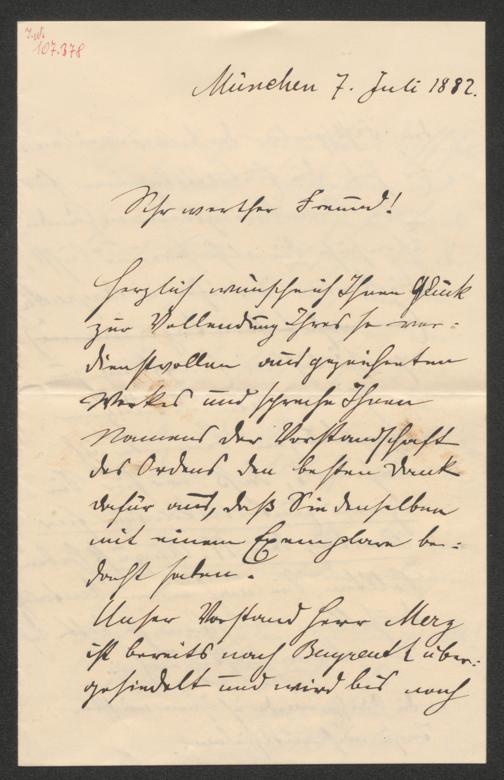 I.N.
107.378
München 7. Juli 1882.
Sehr werther Freund!
Herzlich wünsche ich Ihnen Glück
zur Vollendung Ihres so ver=
dienstvollen ausgezeichneten
Werkes und spreche Ihnen
Namens der Vorstandschaft
des Ordens den besten Dank
dafür aus, daß Sie denselben
mit einem Exemplare be=
dacht haben.
Unser Vorstand Herr Merz
ist bereits nach Bayreuth über=
gesiedelt und wird bis nach